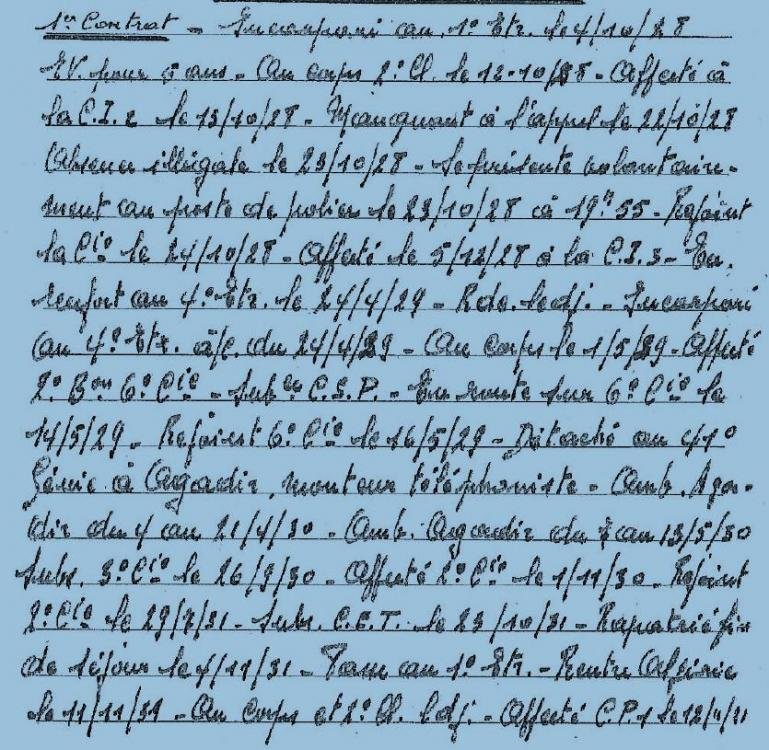 1er Contrat - Incorporé au 1° Etr. le 4/10/28
EV. pour 5 ans - Au corps 2° Cl. le 12-10/28 - Affecté à
la C.I.2 le 13/10/28 - Manquant à l'appel le 22/10/28
Absence illégale le 23/10/28 - Se présente volontaire-
ment au poste de police le 23/10/28 à 19h55 - Rejoint
la Cie le 24/10/28 - Affecté le 5/12/28 à la C.I.3 - En
renfort au 4° Etr. le 24/4/29 - Rdc. le dj. - Incorporé
au 4° Etr. à/c. du 24/4/29 - Au corps le 1/5/29 - Affecté
2° Bon 6° Cie - Subce C.S.P. - En route sur 6° Cie le
14/5/29 - Rejoint 6° Cie le 16/5/29 - Détaché au 41°
Génie à Agadir, monteur téléphoniste - Amb. Aga-
dir du 4 au 21/4/30 - Amb. Agadir du au 13/5/30
Subs. 3° Cie le 26/9/30 - Affecté 2° Cie le 1/11/30 - Rejoint
2° Cie le 29/7/31 - Subs. C.E.T. le 23/10/31 - Rapatrié fin
de séjour le 4/11/31 - Passe au 1° Etr. - Rentre Algérie
le 11/11/31 - Au corps et 2° Cl. ledj. - Affecté C.P.1 le 12/11/31